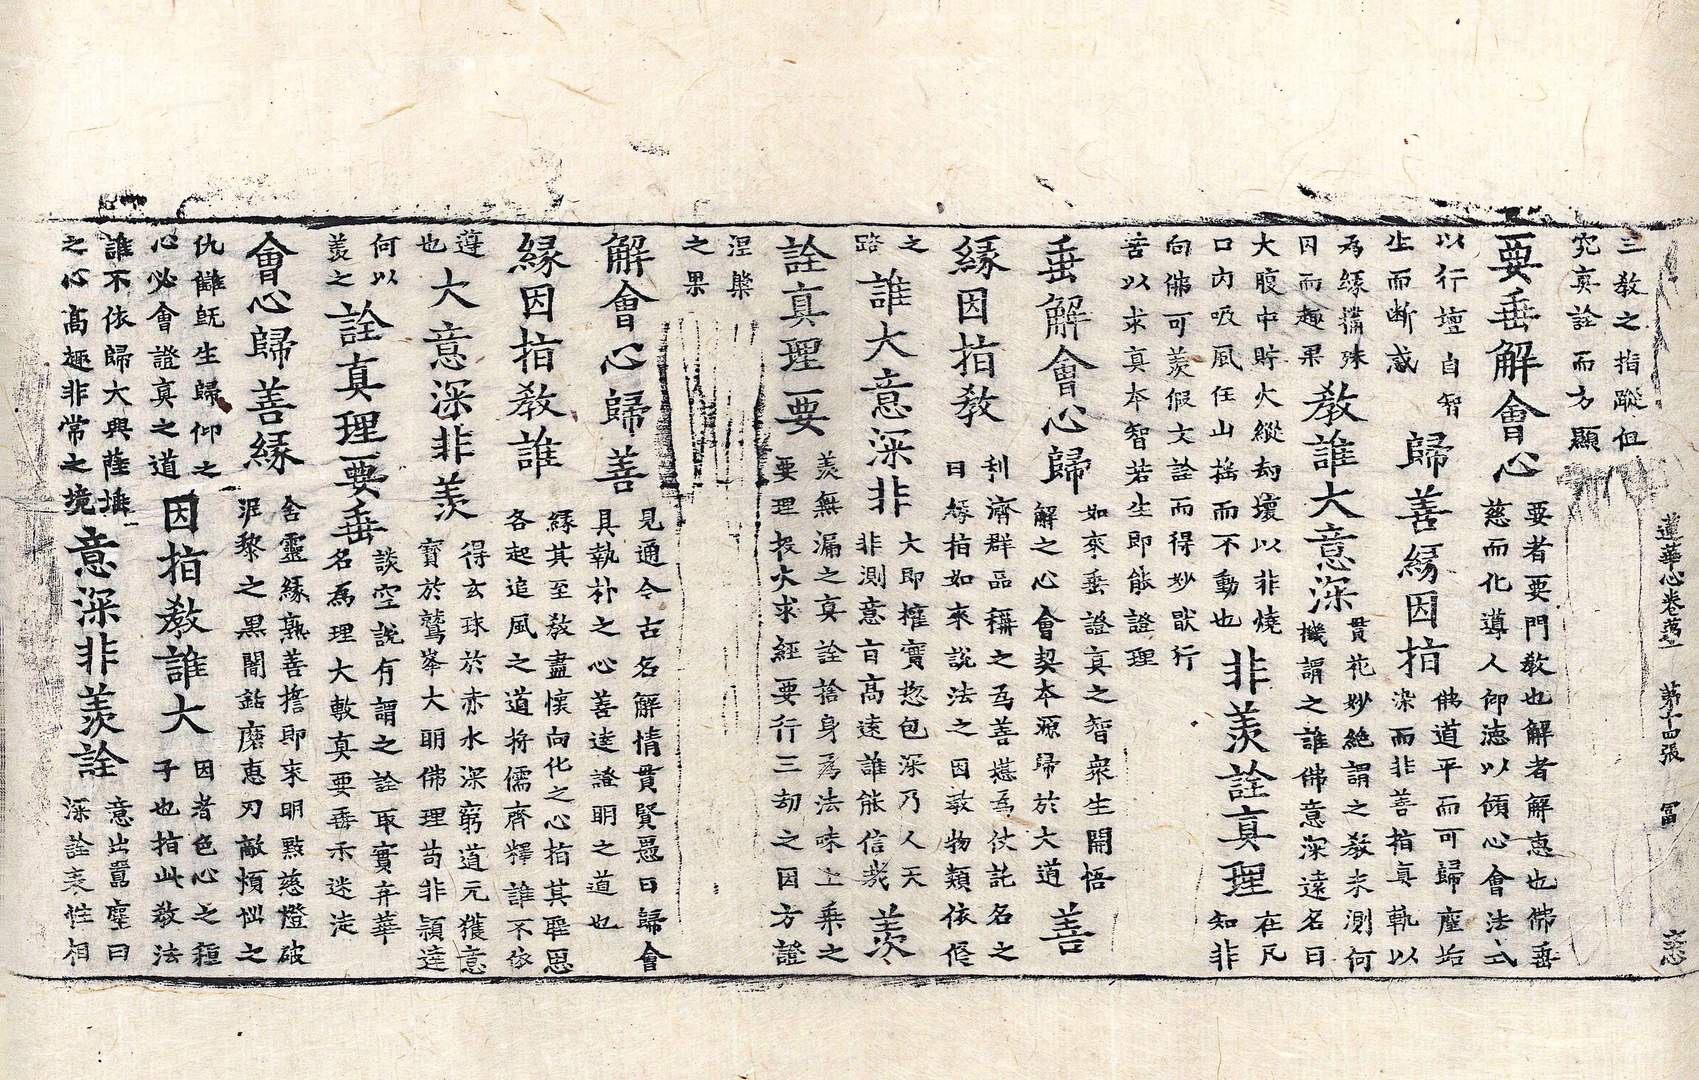 蓮華心卷第 第十四張 冨
三教之指蹤但
究真詮而方顯
要垂解會心
要者要門教也解者解惠也佛垂
慈而化導人仰德以傾心會法式
以行壇自智
生而断惑
歸善縁因指
佛道平而可歸塵垢
染而非善指真軌以
為緣搆殊
因而趣果
教誰大意深
貫花妙絶謂之教未測何
機謂之誰佛意深遠名曰
大腹中貯火縱劫壞以非燒
口内吸風任山搖而不動也
非羨詮真理
在凡
知非
向佛可羨假文詮而得妙歇行
苦以求真本智若生即能證理
垂解會心歸
如來垂證真之智衆生開悟
解之心會契本源歸於大道
善
緣因指教
利濟群品稱之爲善爲伏託名之
曰緣指如來說法之因教物類依修
之
路
誰大意深非
大即權實惣包深乃人天
非測意旨高遠誰能信哉
羨
詮真理要
羨無漏之真詮捨身爲法味上乘之
要理投火求經要行三劫之因方證
涅槃
之果
解會心歸善
見通今古名解情貫賢愚曰歸會
具執朴之心善達證明之道也
縁因指教誰
縁其至教盡懷向化之心指其聖恩
各起追風之道将儒齊釋誰不依
遵
也
大意深非羨
得玄珠於赤水深窮道元獲意
寳於鷲峯大明佛理苟非穎達
何以
羨之
詮真理要垂
談空説有謂之詮取實弃華
名為理大敷真要垂示迷徒
會心歸善縁
含靈緣熟善權即来明㸃慈燈破
泥黎之黒闇銛磨惠刃敵煩惱之
仇讎既生歸仰之
心必會證真之道
因指教誰大
因者色心之種
子也指此教法
誰不依歸大興薩埵
之心高趣非常之境
意深非羨詮
意出囂塵曰
深詮衷性相